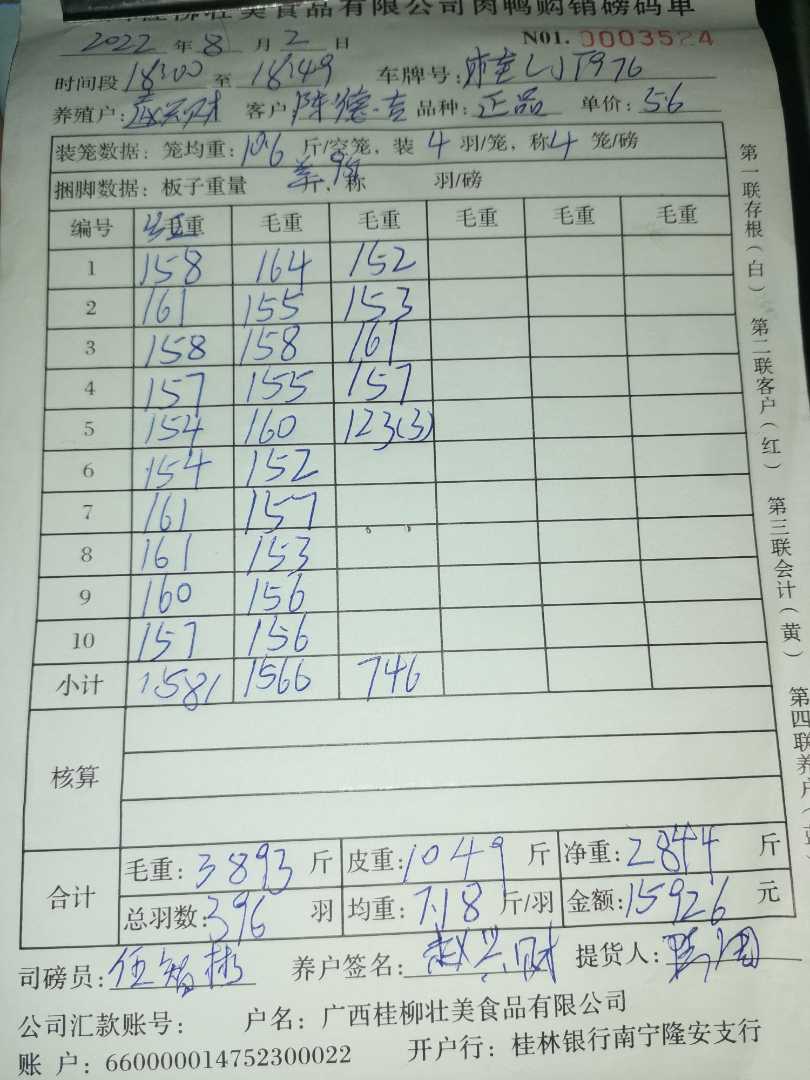 桂柳壮美食品有限公司肉鸭购销磅码单
2022 年 8 月 2 日 N01. 0003524
时间段 18:00 至 18:49 车牌号:
养殖户: 赵兴财 客户 陈德吉 品种: 正品 单价: 5.6
装笼数据: 笼均重: 10.6 斤/空笼, 装 4 羽/笼, 称 4 笼/磅
捆脚数据: 板子重量 斤, 称 羽/磅
编号 毛重 毛重 毛重 毛重 毛重 毛重
1 158 164 152
2 161 155 153
3 158 158 161
4 157 155 157
5 154 160 123(3)
6 154 152
7 161 157
8 161 153
9 160 156
10 157 156
小计 1581 1566 746
核算
合计 毛重: 3893 斤 皮重: 1049 斤 净重: 2844 斤
总羽数: 396 羽 均重: 7.18 斤/羽 金额: 15926 元
司磅员: 伍智彬 养户签名: 赵兴财 提货人:
公司汇款账号: 户名: 广西桂柳壮美食品有限公司
账 户: 660000014752300022 开户行: 桂林银行南宁隆安支行
第一联存根(白) 第二联客户(红) 第三联会计(黄) 第四联养户(蓝)